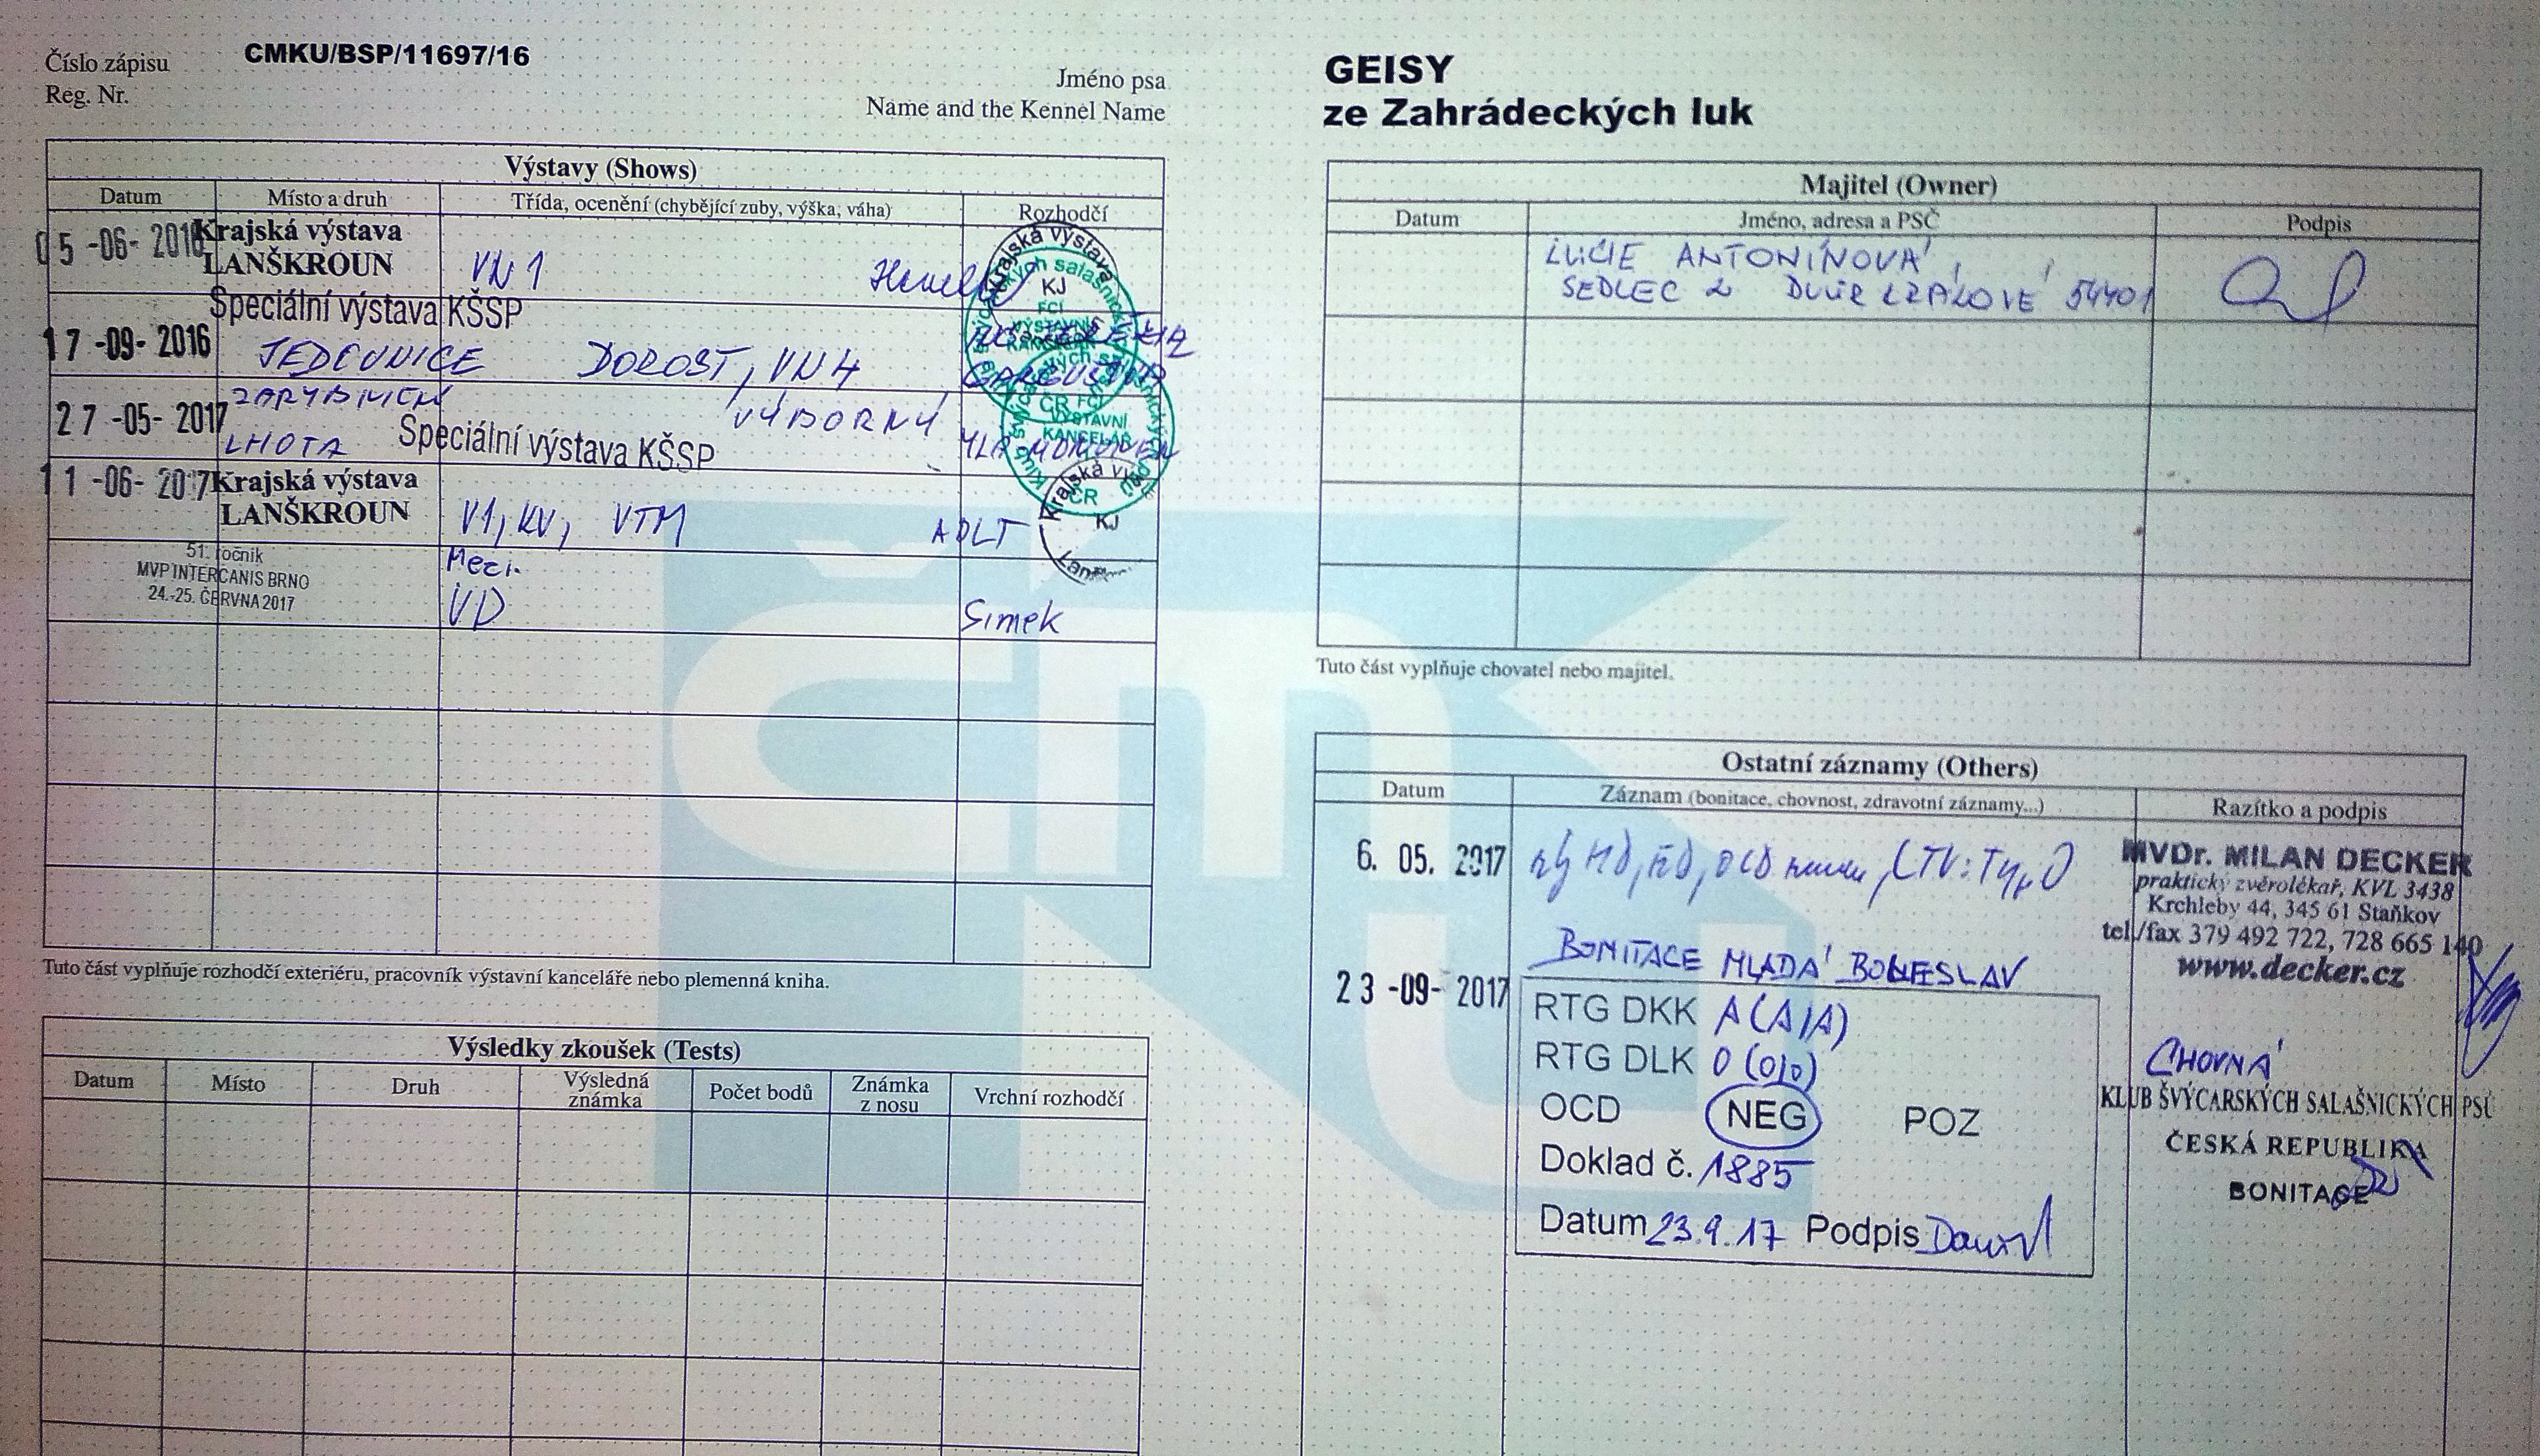 Číslo zápisu
Reg. Nr.
CMKU/BSP/11697/16
Jméno psa
Name and the Kennel Name
GEISY
ze Zahrádeckých luk
Výstavy (Shows)
Datum Místo a druh Třída, ocenění (chybějící zuby, výška, váha) Rozhodčí
05-06-2016 Krajská výstava
LANŠKROUN VN 1
Speciální výstava KŠSP
17-09-2016 JEDOVNICE DOROST, VN 4
27-05-2017 LHOTA VÝBORNÝ
Speciální výstava KŠSP
11-06-2017 Krajská výstava
LANŠKROUN V1, KV, VTM ADLT
51. ročník
MVP INTERCANIS BRNO
24.-25. ČERVNA 2017
Mezi.
VD Simek
Krajská výstava
KJ
FCI
VÝSTAVNÍ
KANCELÁŘ
ČR
FCI
VÝSTAVNÍ
KANCELÁŘ
ČR
Krajská
KJ
Tuto část vyplňuje rozhodčí exteriéru, pracovník výstavní kanceláře nebo plemenná kniha.
Výsledky zkoušek (Tests)
Datum Místo Druh Výsledná známka Počet bodů Známka z nosu Vrchní rozhodčí
Majitel (Owner)
Datum Jméno, adresa a PSČ Podpis
LUCIE ANTONÍNOVÁ,
SEDLEC 2 DVŮR KRÁLOVÉ 54401
Tuto část vyplňuje chovatel nebo majitel.
Ostatní záznamy (Others)
Datum Záznam (bonitace, chovnost, zdravotní záznamy...) Razítko a podpis
6. 05. 2017 HD, ED, OCD LTV: Typ 0
MVDr. MILAN DECKER
praktický zvěrolékař, KVL 3438
Krchleby 44, 345 61 Staňkov
tel./fax 379 492 722, 728 665 140
www.decker.cz
BONITACE MLADÁ BOLESLAV
23-09-2017
RTG DKK A (A/A)
RTG DLK 0 (0/0)
OCD NEG POZ
Doklad č. 1885
Datum 23.9.17 Podpis
CHOVNÁ
KLUB ŠVÝCARSKÝCH SALAŠNICKÝCH PSŮ
ČESKÁ REPUBLIKA
BONITACE